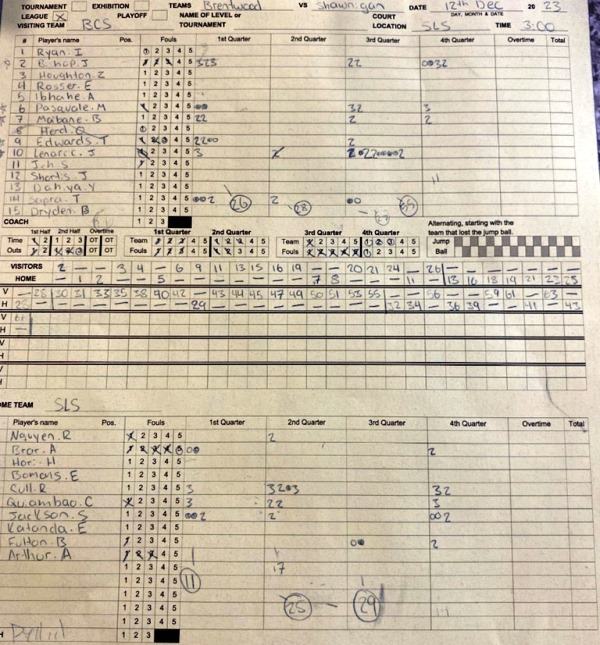 TOURNAMENT EXHIBITION TEAMS Brentwood VS Shawnigan DATE 12th Dec 20 23
LEAGUE X PLAYOFF NAME OF LEVEL or TOURNAMENT COURT LOCATION SLS DAY, MONTH & DATE TIME 3:00
VISITING TEAM BCS
# Player's name Pos. Fouls 1st Quarter 2nd Quarter 3rd Quarter 4th Quarter Overtime Total
1 Ryan. I 1 2 3 4 5
2 Bishop. J 1 2 3 4 5 323 22 0032
3 Houghton. Z 1 2 3 4 5
4 Rosser. E 1 2 3 4 5
5 Ibhahe. A 1 2 3 4 5
6 Pasquale. M 1 2 3 4 5 00 32 3
7 Maibane. B 1 2 3 4 5 22 2 2
8 Herd. Q 1 2 3 4 5
9 Edwards. T 1 2 3 4 5 2200 2
10 Lenarcic. J 1 2 3 4 5 3
11 1 2 3 4 5
12 Shortis. J 1 2 3 4 5 11
13 Dahiya. Y 1 2 3 4 5
14 Sapra. T 1 2 3 4 5 002 26 2 28 00
15 Dryden. B 1 2 3 4 5
COACH 1 2 3
1st Half 2nd Half Overtime 1st Quarter 2nd Quarter 3rd Quarter 4th Quarter Alternating, starting with the team that lost the jump ball.
Time 1 2 1 2 3 OT OT Team 1 2 3 4 5 1 2 3 4 5 Team 1 2 3 4 5 1 2 3 4 5 Jump
Outs 1 2 1 2 3 OT OT Fouls 1 2 3 4 5 1 2 3 4 5 Fouls 1 2 3 4 5 1 2 3 4 5 Ball
VISITORS 2 — — 3 4 — 6 9 11 13 15 16 19 — — 20 21 24 — 26 — — — — — —
HOME — 1 2 — — 5 — — — — — — — 7 8 — — — 11 — 13 16 18 19 21 22 23
V — 28 30 31 33 35 38 40 42 — 43 44 45 47 49 50 51 53 55 — — 56 — — 59 61 — 63 — —
H 25 — — — — — — — — 29 — — — — — — — — — 32 34 — 36 39 — — 41 — 43
V
H
V
H
V
H
HOME TEAM SLS
Player's name Pos. Fouls 1st Quarter 2nd Quarter 3rd Quarter 4th Quarter Overtime Total
Nguyen. R 1 2 3 4 5 2
Brar. A 1 2 3 4 5 00 2
Hori. H 1 2 3 4 5
Bomans. E 1 2 3 4 5
Cull. R 1 2 3 4 5 3 3203 32
Quiambao. C 1 2 3 4 5 3 22 3
Jackson. S 1 2 3 4 5 002 2 002
Katanda. E 1 2 3 4 5
Fulton. B 1 2 3 4 5 00 2
Arthur. A 1 2 3 4 5
1 2 3 4 5 17
1 2 3 4 5 11
1 2 3 4 5 25 — 29
1 2 3 4 5
1 2 3 4 5
H 1 2 3